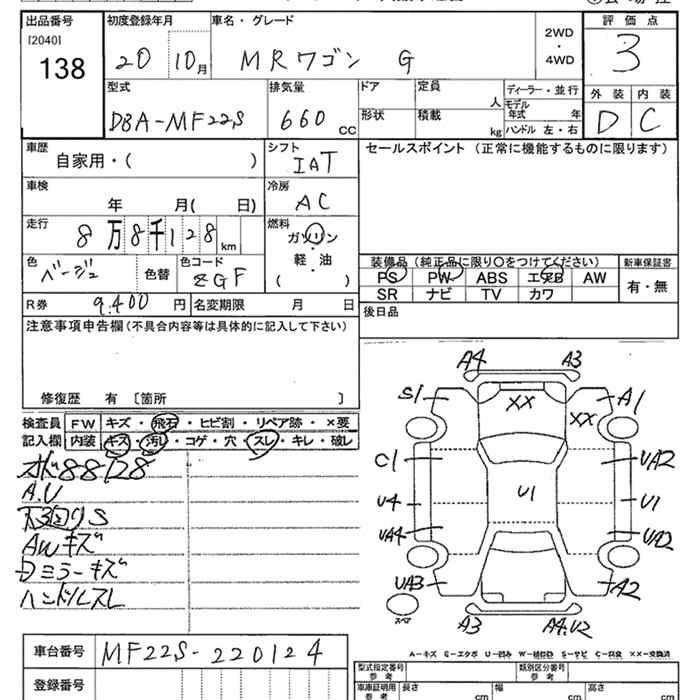 出品番号 初度登録年月 車名・グレード 2WD・4WD 評価点
[2040]
138 20 10月 MRワゴン G 3
型式 排気量 ドア 定員 人 ディーラー・並行 外装 内装
DBA-MF22S 660cc 形状 積載 kg モデル年式 年 D C
ハンドル 左・右
車歴 シフト セールスポイント (正常に機能するものに限ります)
自家用・( ) IAT
車検 冷房
年 月( 日) AC
走行 燃料
8万8千128km ガソリン・軽油・( )
色 色替 色コード 装備品(純正品に限り○をつけてください) 新車保証書
ベージュ ZGF PS PW ABS エアB AW 有・無
SR ナビ TV カワ
R券 9,400円 名変期限 月 日 後日品
注意事項申告欄(不具合内容等は具体的に記入して下さい)
修復歴 有 〔箇所 〕
検査員 FW キズ・飛石・ヒビ割・リペア跡・×要
記入欄 内装 キズ・汚レ・コゲ・穴・スレ・キレ・破レ
ホ゛88128
A.U
下回りS
AWキズ
Dミラーキズ
ハンドルスレ
A4 A3
S1 XX XX A1
C1 UA2
U4 U1 U1
UA4 UA2
UA3 A2
スペア A3 A4.U2
A-キズ E-エクボ U-凹み W-補修跡 S-サビ C-腐食 XX-交換済
車台番号 MF22S-220124
型式指定番号 参考 類別区分番号 参考
登録番号 車庫証明用 参考 長さ cm 幅 cm 高さ cm